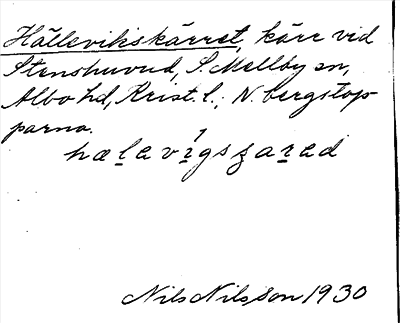 Hällevikskärret, kärr vid
Stenshuvud, S. Mellby sn,
Albo hd, Krist. l.; N. bergstop-
parna.
hælevigsʒarad
Nils Nilsson 1930